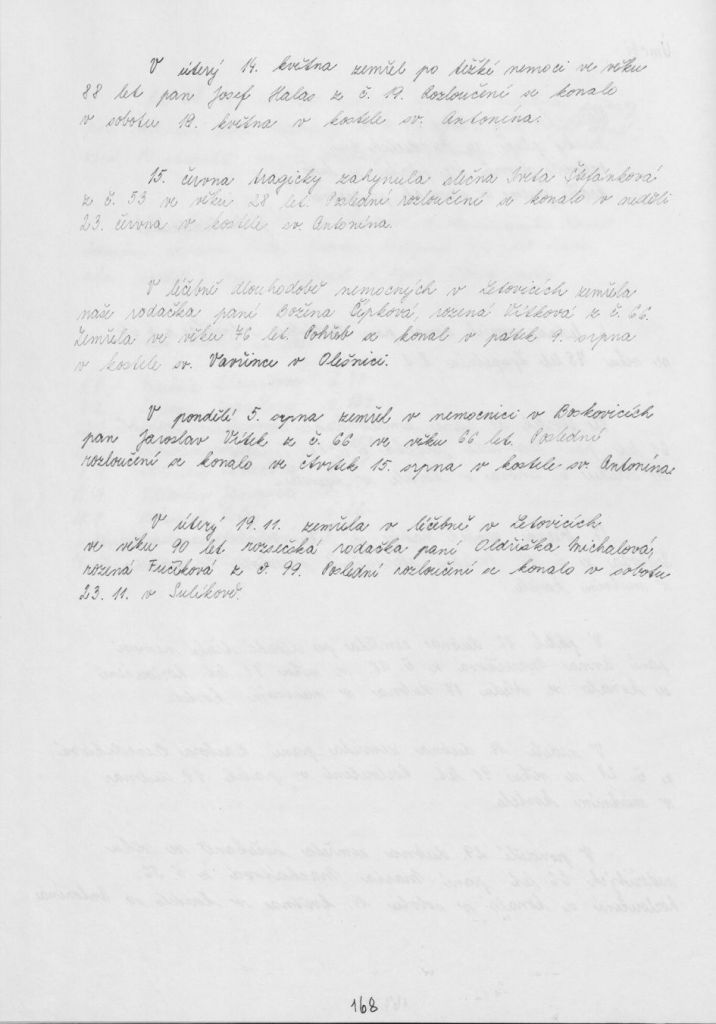 V úterý 14. května zemřel po těžké nemoci ve věku
88 let pan Josef Halas z č. 19. Rozloučení se konalo
v sobotu 18. května v kostele sv. Antonína.
15. června tragicky zahynula slečna Iveta Štefánková
z č. 53 ve věku 28 let. Poslední rozloučení se konalo v neděli
23. června v kostele sv. Antonína.
V léčebně dlouhodobě nemocných v Letovicích zemřela
naše rodačka paní Božena Čípková, rozená Vítková z č. 66.
Zemřela ve věku 76 let. Pohřeb se konal v pátek 9. srpna
v kostele sv. Vavřince v Olešnici.
V pondělí 5. srpna zemřel v nemocnici v Boskovicích
pan Jaroslav Vítek z č. 66 ve věku 66 let. Poslední
rozloučení se konalo ve čtvrtek 15. srpna v kostele sv. Antonína.
V úterý 19.11. zemřela v léčebně v Letovicích
ve věku 90 let rozsečská rodačka paní Oldřiška Michalová,
rozená Fučíková z č. 99. Poslední rozloučení se konalo v sobotu
23.11. v Sulíkově.
168